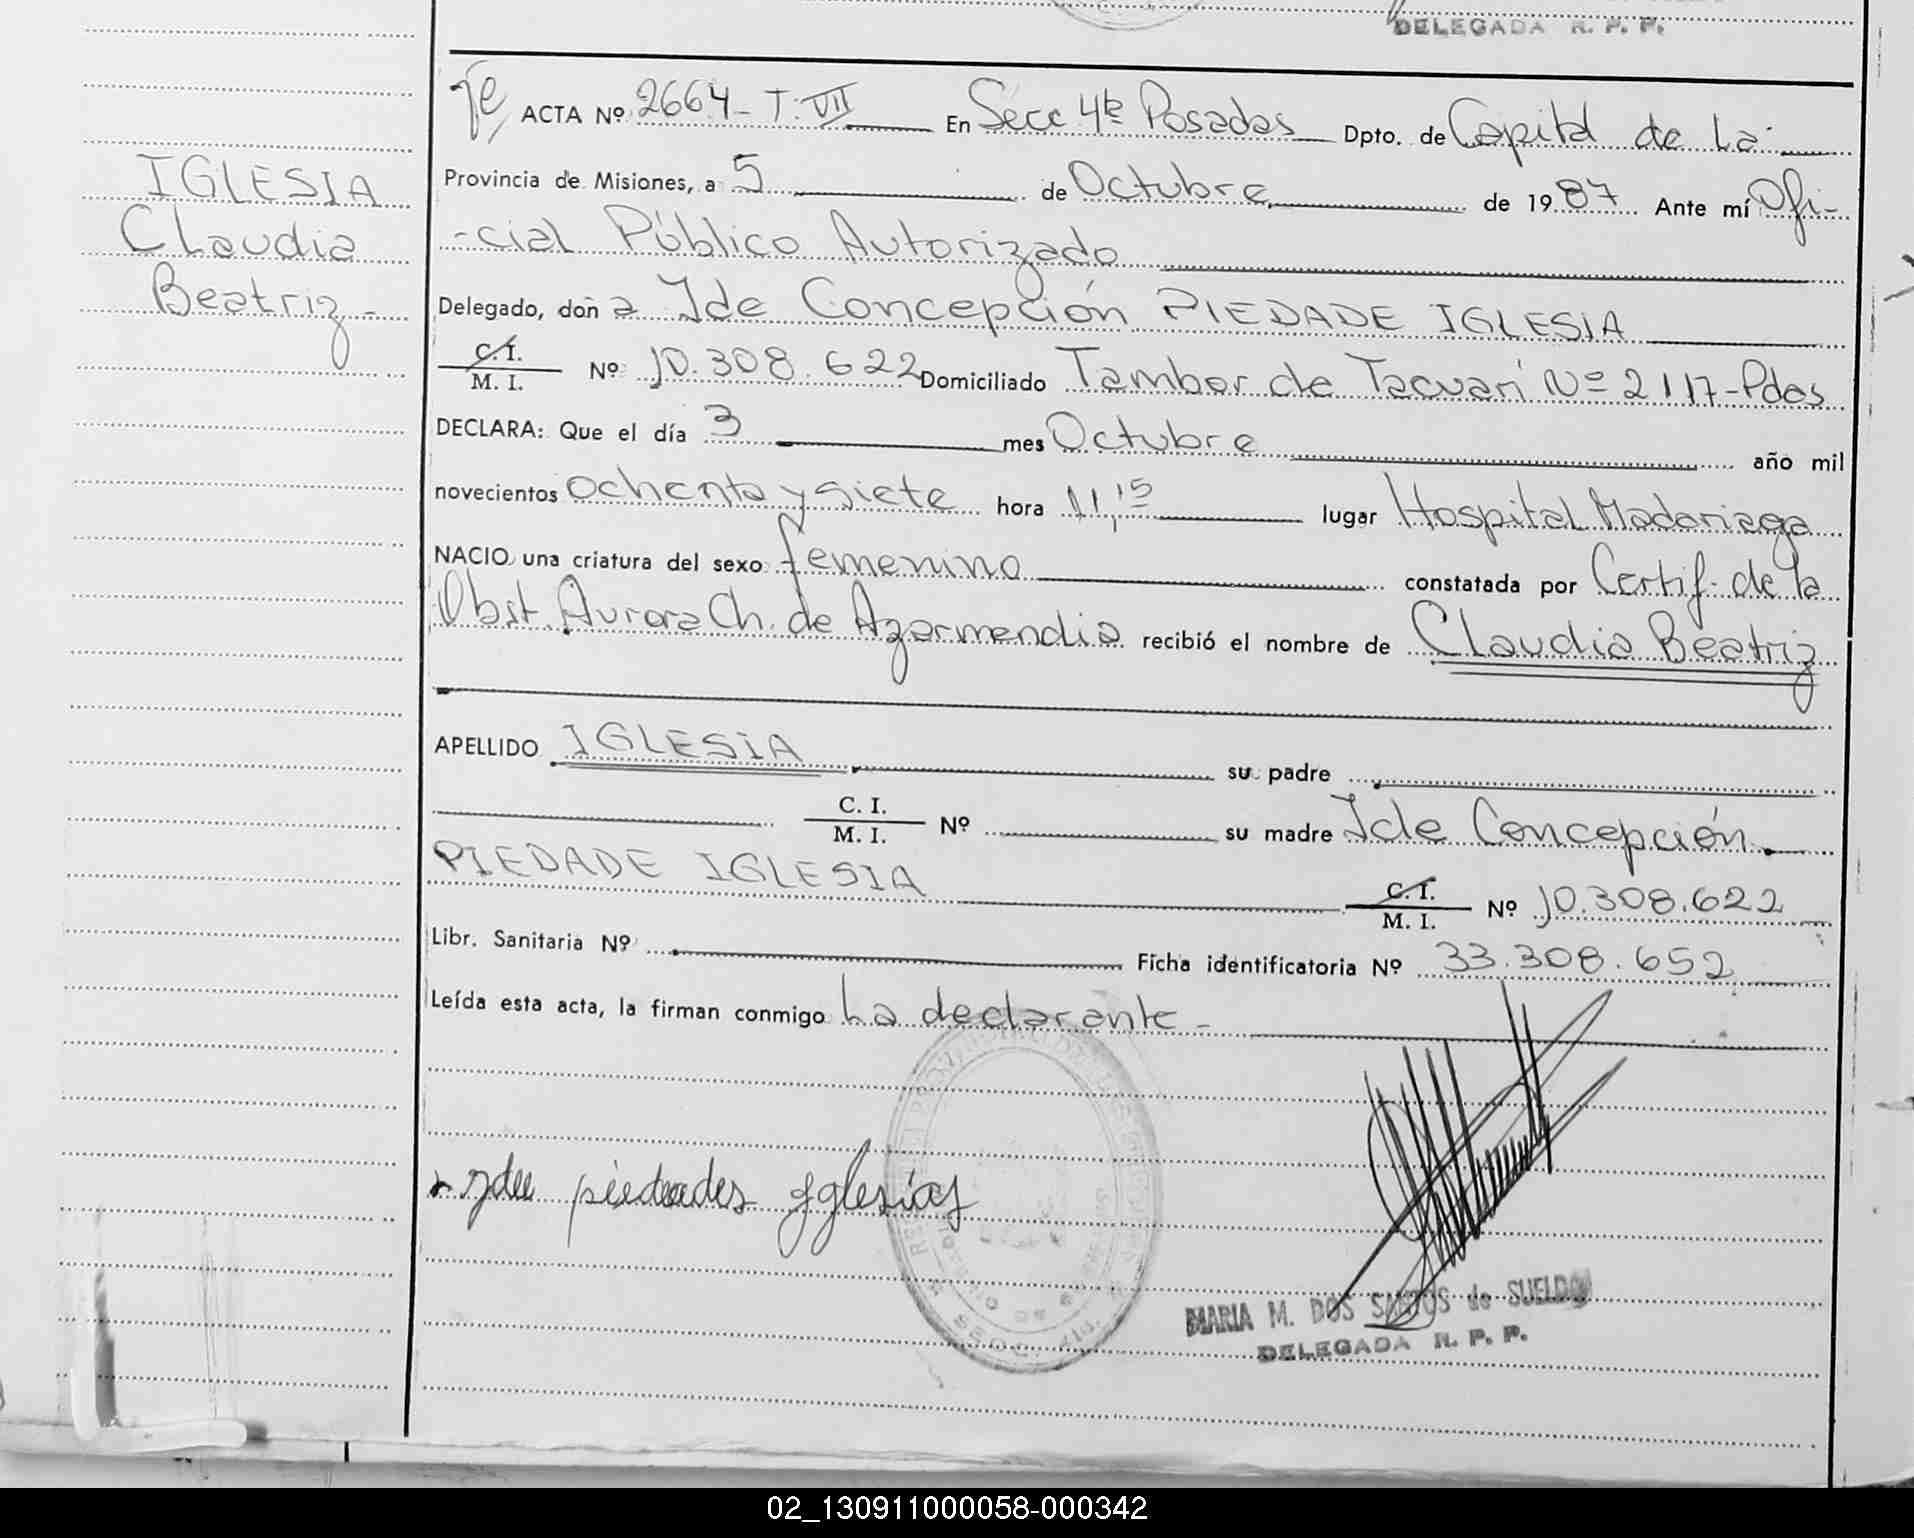 DELEGADA R. P. P.
ACTA Nº 2664- T: VII En Secc 4ta Posadas Dpto. de Capital de La
IGLESIA
Claudia
Beatriz-
Provincia de Misiones, a 5 de Octubre de 1987 Ante mí Ofi-
-cial Público Autorizado
Delegado, doña Ide Concepción PIEDADE IGLESIA
C.I.
M. I. Nº 10.308.622 Domiciliado Tambor de Tacuarí Nº 2117-Pdas
DECLARA: Que el día 3 mes Octubre año mil
novecientos ochenta y siete hora 11,15 lugar Hospital Madariaga
NACIO una criatura del sexo femenino constatada por Certif. de la
Obst. Aurora Ch. de Azarmendia recibió el nombre de Claudia Beatriz
APELLIDO IGLESIA su padre
C. I.
M. I. Nº su madre Ide Concepción
PIEDADE IGLESIA C.I.
M. I. Nº 10.308.622
Libr. Sanitaria Nº Ficha identificatoria Nº 33.308.652
Leída esta acta, la firman conmigo La declarante-
Ide piedades Iglesias
MARIA M. DOS SANTOS de SUELDO
DELEGADA R. P. P.
02_130911000058-000342